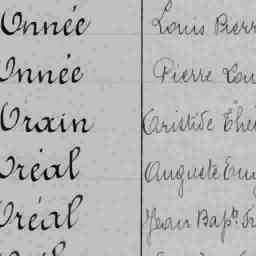 Onnée Louis Pierr
Onnée Pierre Lou
Orain Aristide Thé
Oréal Auguste Eug
Oréal Jean Bapt. Fr